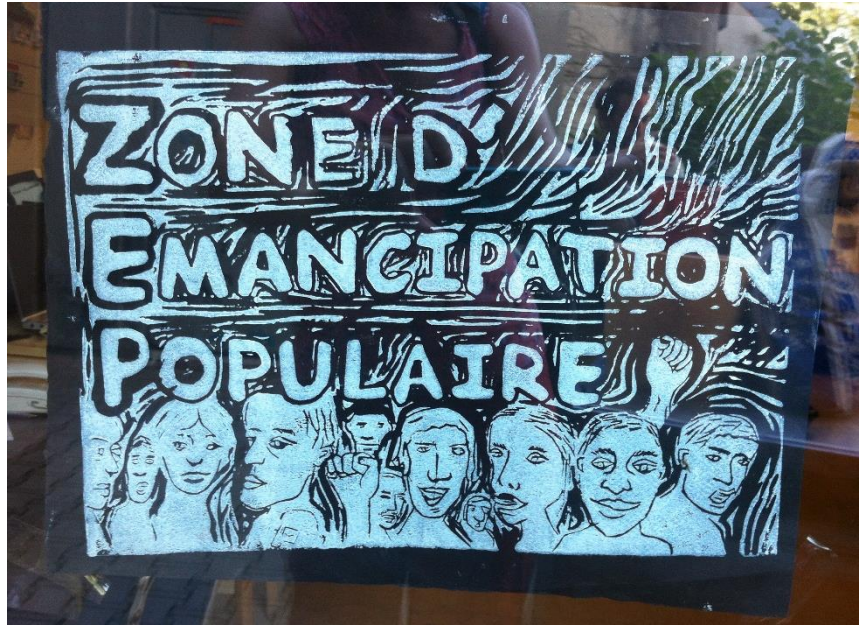 ZONE D'
EMANCIPATION
POPULAIRE